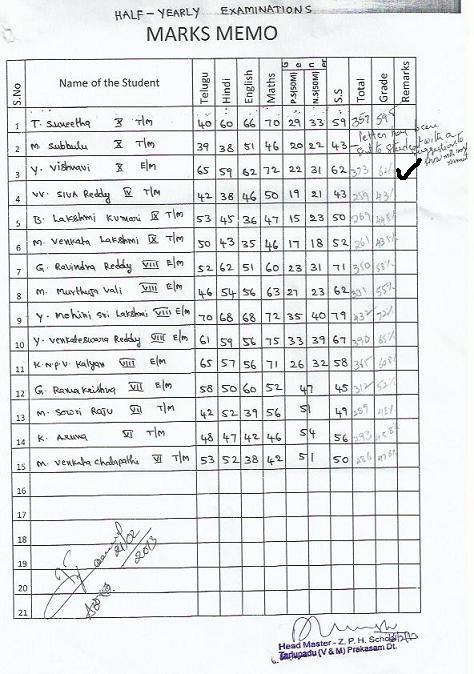 HALF-YEARLY EXAMINATIONS
MARKS MEMO
S.No Name of the Student Telugu Hindi English Maths P.S(50M) N.S(50M) S.S Total Grade Remarks
1 T. Suneetha X T/M 40 60 66 70 29 33 59 357
letter has been
sent to student with a
2 M. Subbulu X T/M 39 38 51 46 20 22 43
3 Y. Vishnavi X E/M 65 59 62 72 22 31 62 373
4 VV. Siva Reddy IX T/M 42 38 46 50 19 21 43 259
5 B. Lakshmi Kumari IX T/M 53 45 36 47 15 23 50 269
6 M. Venkata Lakshmi IX T/M 50 43 35 46 17 18 52 261
7 G. Ravindra Reddy VIII E/M 52 62 51 60 23 31 71 350 58%
8 M. Murthuja Vali VIII E/M 46 54 56 63 27 23 62 331 55%
9 Y. Mohini Sri Lakshmi VIII E/M 70 68 68 72 35 40 79 432 72%
10 Y. Venkateswara Reddy VIII E/M 61 59 56 75 33 39 67 390 65%
11 K.N.P.V. Kalyan VIII E/M 65 57 56 71 26 32 58 365
12 G. Rama Krishna VII E/M 58 50 60 52 47 45 312 52%
13 M. Sowri Raju VI T/M 42 52 39 56 51 49 289 48%
14 K. Aruna VI T/M 48 47 42 46 54 56 293
15 M. Venkata Chalapathi VI T/M 53 52 38 42 51 50 286
16
17
18
19
20
21
21/02
2013
Head Master - Z. P. H. School
Tarlupadu (V & M) Prakasam Dt.